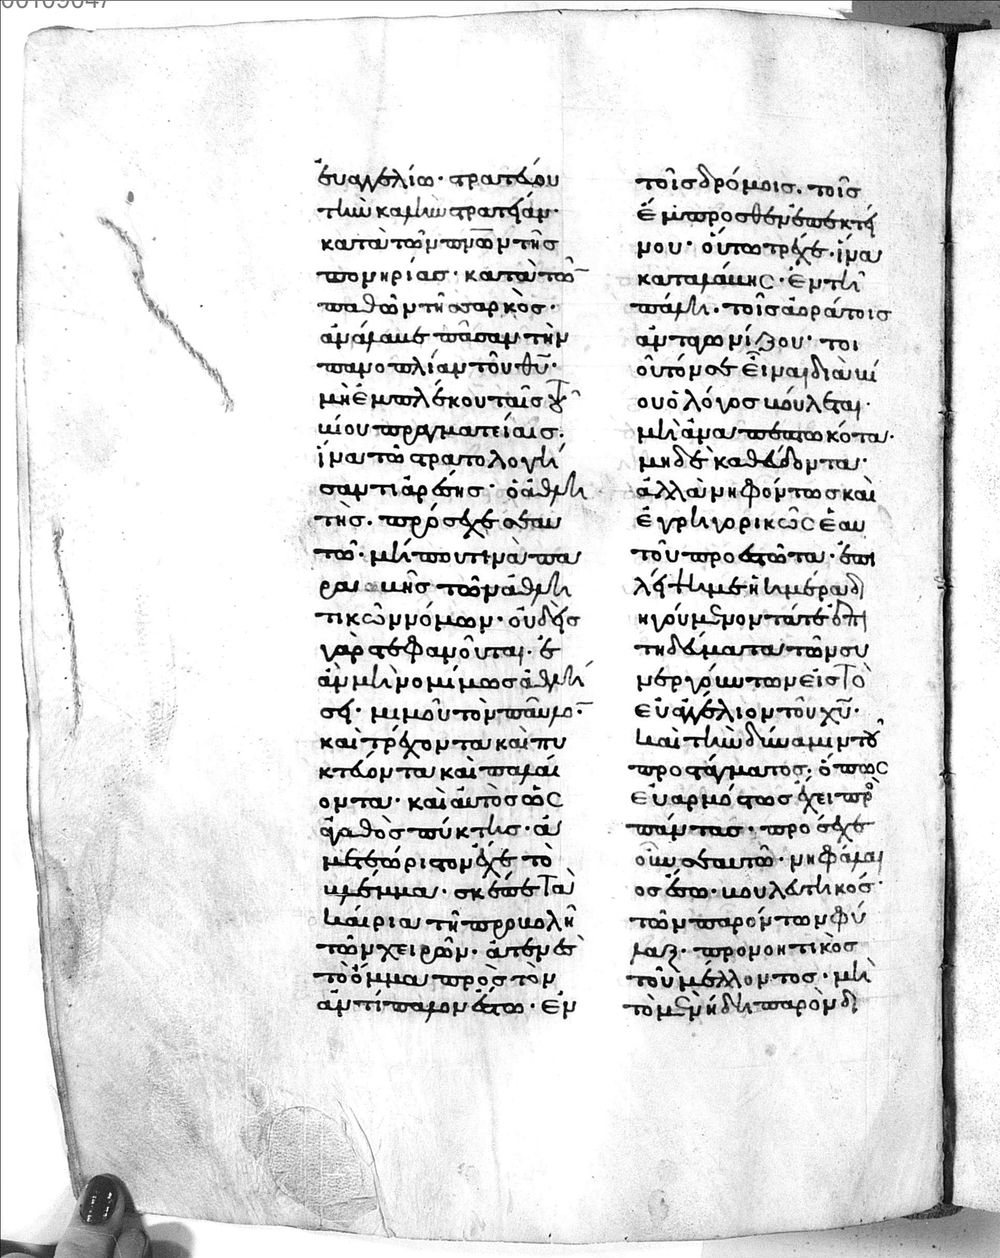 εὐαγγελίω· στρατεύου
τὴν καλὴν στρατείαν·
κατὰ τῶν πνῶν τῆς
πονηρίας· κατὰ τῶν
παθῶν τῆς σαρκός·
ἀνάλαβε πᾶσαν τὴν
πανοπλίαν τοῦ θῦ·
μὴ ἐμπλέκου ταῖς τοῦ
βίου πραγματείαις·
ἵνα τῶ στρατολογή
σαντι ἀρέσης· ὁ ἀθλη
τής· πρόσεχε σεαυ
τῶ· μήπου τινὰ πα
ραβαίνης τῶν ἀθλη
τικῶν νόμων· οὐδεὶς
γὰρ στεφανοῦται· ἐ
ὰν μὴ νομίμως ἀθλή
ση· μιμοῦ τὸν παῦλον·
καὶ τρέχοντα καὶ πυ
κτεύοντα καὶ παλαί
οντα· καὶ αὐτὸς ὡς
ἀγαθὸς πύκτης· ἀ
μετεώριστον ἔχε τὸ
βλέμμα· σκέπε τὰ
καίρια τῆ προβολῆ
τῶν χειρῶν· ἀτενὲς
τὸ ὄμμα πρὸς τὸν
ἀντίπαλον ἔστω· ἐν
τοῖς δρόμοις· τοῖς
ἔμπροσθεν ἐπεκτεί
νου· οὕτω τρέχε· ἵνα
καταλάβης· ἐν τῆ
πάλη· τοῖς ἀοράτοις
ἀνταγωνίζου· τοι
οῦτόν σε εἶναι διὰ βί
ου ὁ λόγος βούλεται·
μὴ ἀναπεπτωκότα·
μηδὲ καθεύδοντα·
ἀλλὰ νηφόντως καὶ
ἐγρηγορικῶς ἑαυ
τοῦ προεστῶτα· ἐπι
λείψει με ἡ ἡμέρα δι
ηγούμενον τά τε ἐπι
τηδεύματα τῶν συ
νεργούντων εἰς τὸ
εὐαγγέλιον τοῦ χῦ·
καὶ τὴν δύναμιν τοῦ
προστάγματος· ὅπως
εὐαρμόστως ἔχει πρὸς
πάντας· πρόσεχε
οὖν σεαυτῶ· νηφάλι
ος ἔσο· βουλευτικός·
τῶν παρόντων φύ
λαξ· προνοητικὸς
τοῦ μέλλοντος· μὴ
τὸ μὲν ἤδη παρὸν δι